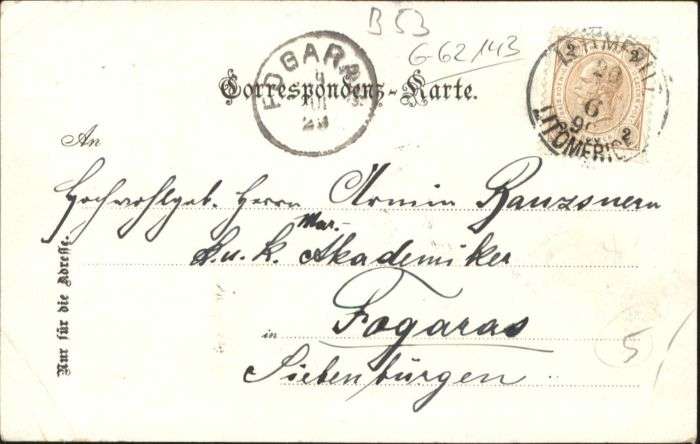 B 53
G 62 143
Correspondenz-Karte.
FOGARAS
LITOMĚŘICE
20
6
2
2
2
An
Hochwohlgeb. Herrn Armin
Mar.-
k. u. k. Akademiker
in Fogaras
Siebenbürgen
Nur für die Adresse.
5